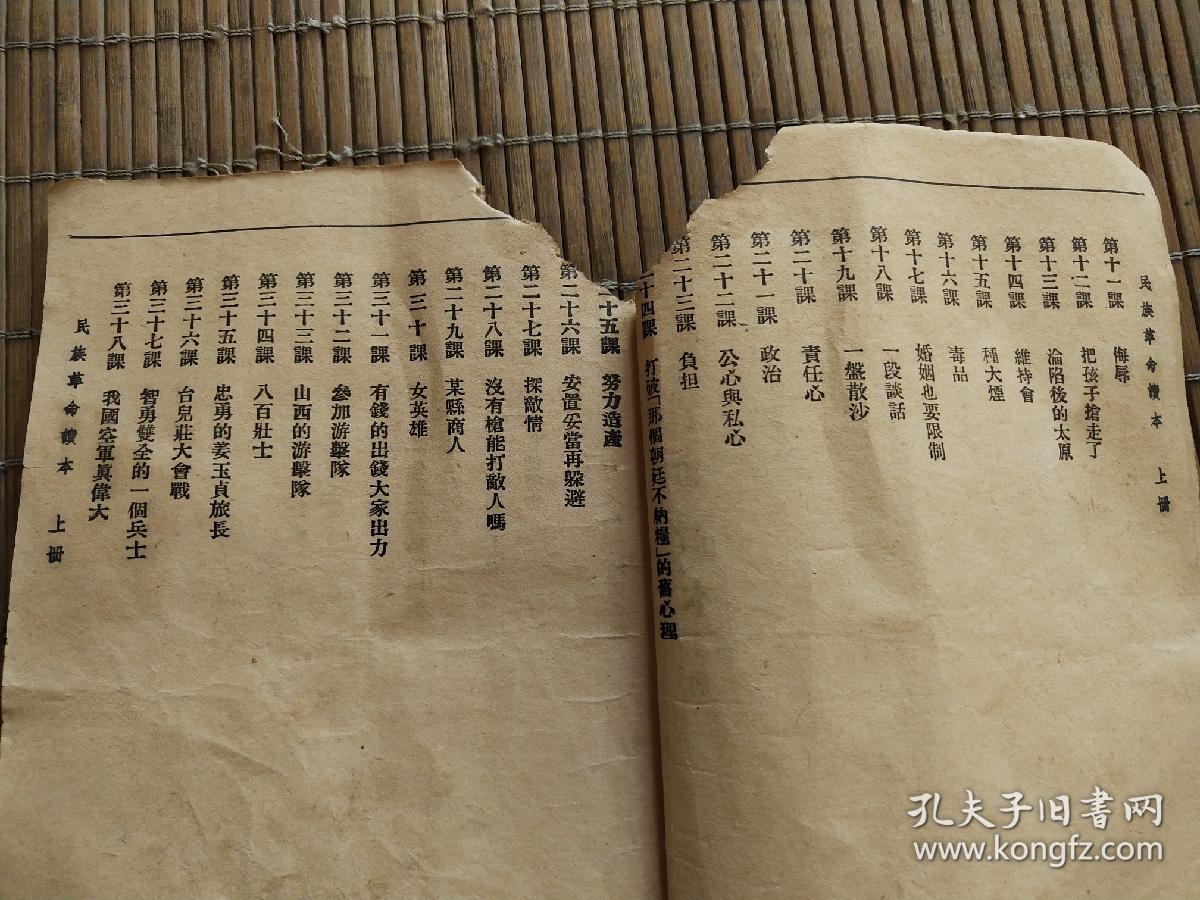 民族革命讀本 上冊
第十一課 侮辱
第十二課 把孩子搶走了
第十三課 淪陷後的太原
第十四課 維持會
第十五課 種大煙
第十六課 毒品
第十七課 婚姻也要限制
第十八課 一段談話
第十九課 一盤散沙
第二十課 責任心
第二十一課 政治
第二十二課 公心與私心
第二十三課 負担
二十四課 打破「那個朝廷不納糧」的舊心理
二十五課 努力造產
第二十六課 安置妥當再躲避
第二十七課 探敵情
第二十八課 沒有槍能打敵人嗎
第二十九課 某縣商人
第三十課 女英雄
第三十一課 有錢的出錢大家出力
第三十二課 參加游擊隊
第三十三課 山西的游擊隊
第三十四課 八百壯士
第三十五課 忠勇的姜玉貞旅長
第三十六課 台兒莊大會戰
第三十七課 智勇雙全的一個兵士
第三十八課 我國空軍眞偉大
民族革命讀本 上冊
孔夫子旧书网
www.kongfz.com